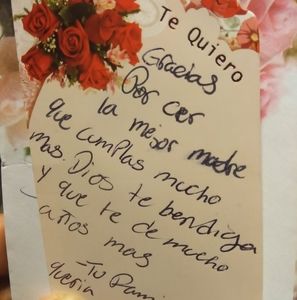 Te Quiero
Gracias
Por cer
la mejor madre
que cumplas mucho
mas. Dios te bendiga
y que te de mucho
años mas
-Tu